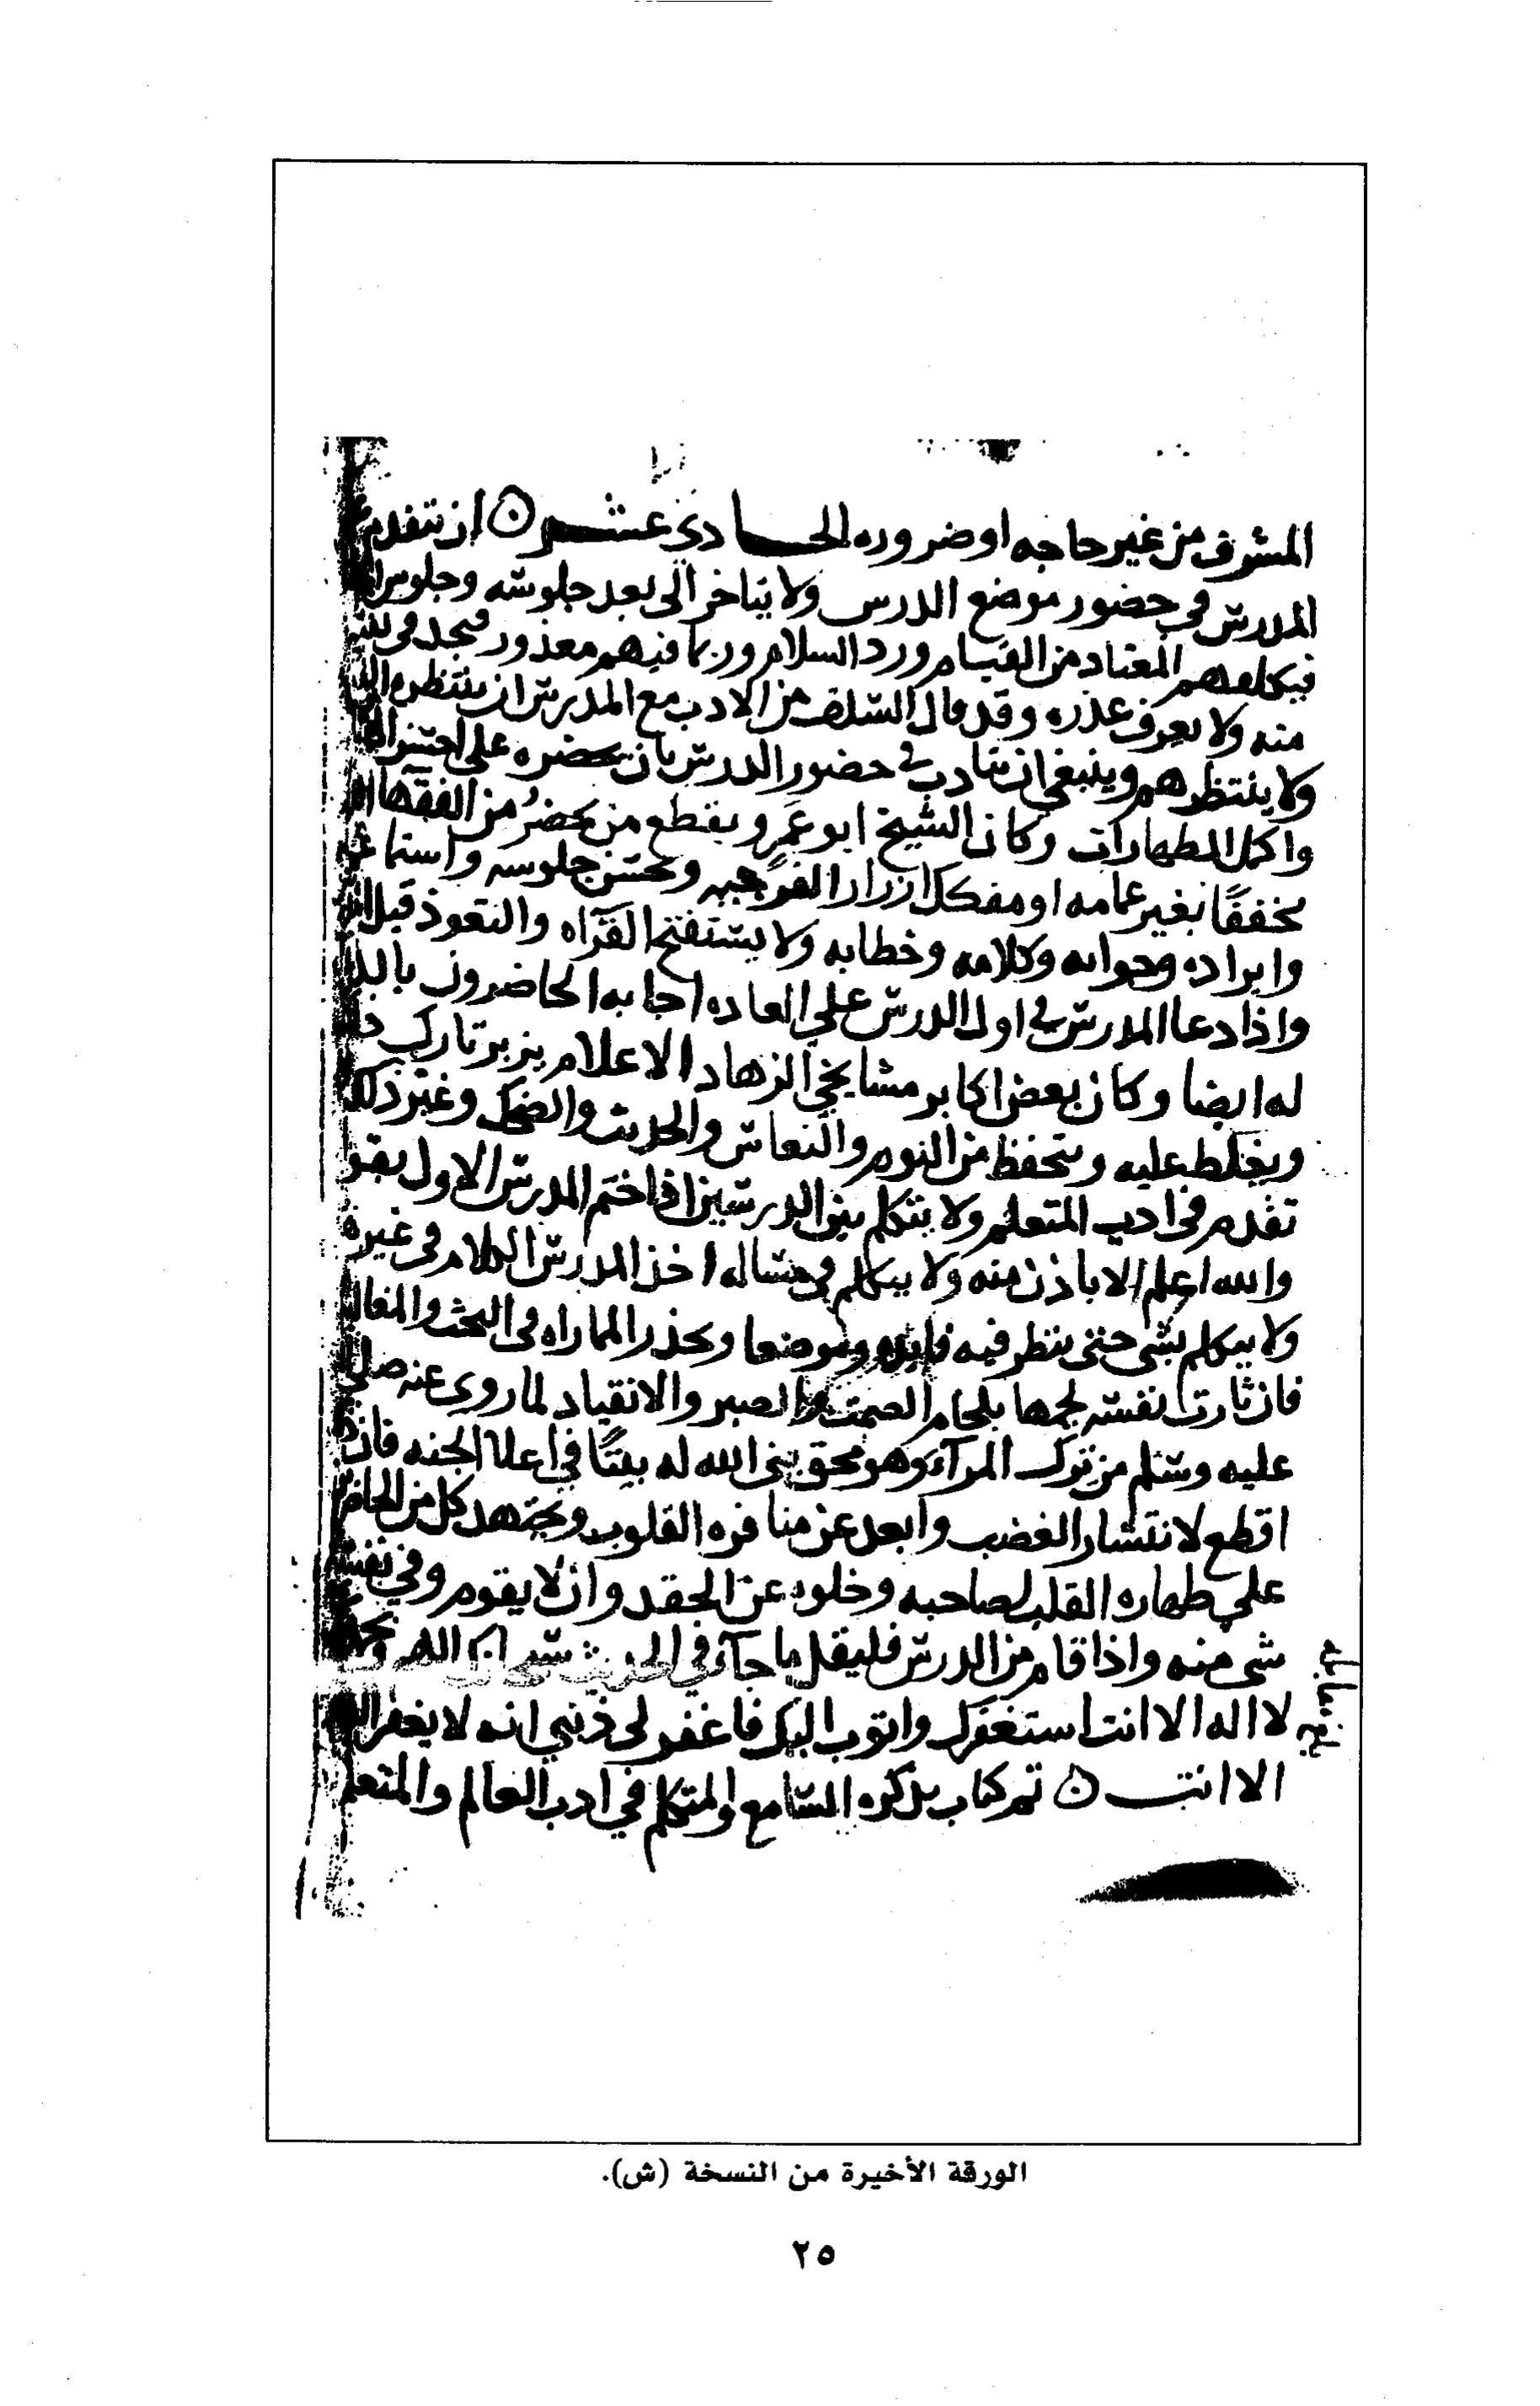 المشرف من غير حاجه او ضروره الحادي عشر ان يتقدم
المدرس في حضور موضع الدرس ولا يتاخر الى بعد جلوسه وجلوس
فيكلفهم المعتاد من القيام ورد السلام وربما فيهم معذور فيجد في نفسه
منه ولا يعرف عذره وقد قال السلف من الادب مع المدرس ان ينتظره
ولا ينتظرهم وينبغي ان يتادب في حضور الدرس بان يحضره على احسن
واكمل الطهارات وكان الشيخ ابو عمرو يقطع من يحضر من الفقهاء
مخففا بغير عمامه او مفكك ازرار الفرجيه ويحسن جلوسه واستماعه
وايراده وجوابه وكلامه وخطابه ولا يستفتح القراه والتعوذ قبل
واذا دعا المدرس في اول الدرس على العاده اجابه الحاضرون
له ايضا وكان بعض اكابر مشايخي الزهاد الاعلام يزبر تارك
ويغلظ عليه ويتحفظ من النوم والنعاس والحديث والضحك وغير ذلك
تقدم في ادب المتعلم ولا يتكلم بين الدرسين اذا ختم المدرس الاول بقوله
والله اعلم الا باذن منه ولا يتكلم في مساله اخذ المدرس الكلام في غيرها
ولا يتكلم بشي حتى ينظر فيه فايده وموضعا ويحذر المماراه في البحث والمغالبه
فان ثارت نفسه لجمها بلجام الصمت والصبر والانقياد لما روي عنه صلى
عليه وسلم من ترك المرآء وهو محق بنى الله له بيتا في اعلا الجنه فان
اقطع لانتشار الغضب وابعد عن منافره القلوب وليجتهد كل من الحاضرين
على طهاره القلب لصاحبه وخلوه عن الحقد وان لا يقوم وفي نفسه
شي منه واذا قام من الدرس فليقل ما جآء في الحديث سبحانك اللهم وبحمدك
لا اله الا انت استغفرك واتوب اليك فاغفر لي ذنبي انه لا يغفر
الا انت تم كتاب تذكره السامع والمتكلم في ادب العالم والمتعلم
الورقة الأخيرة من النسخة (ش).
٢٥